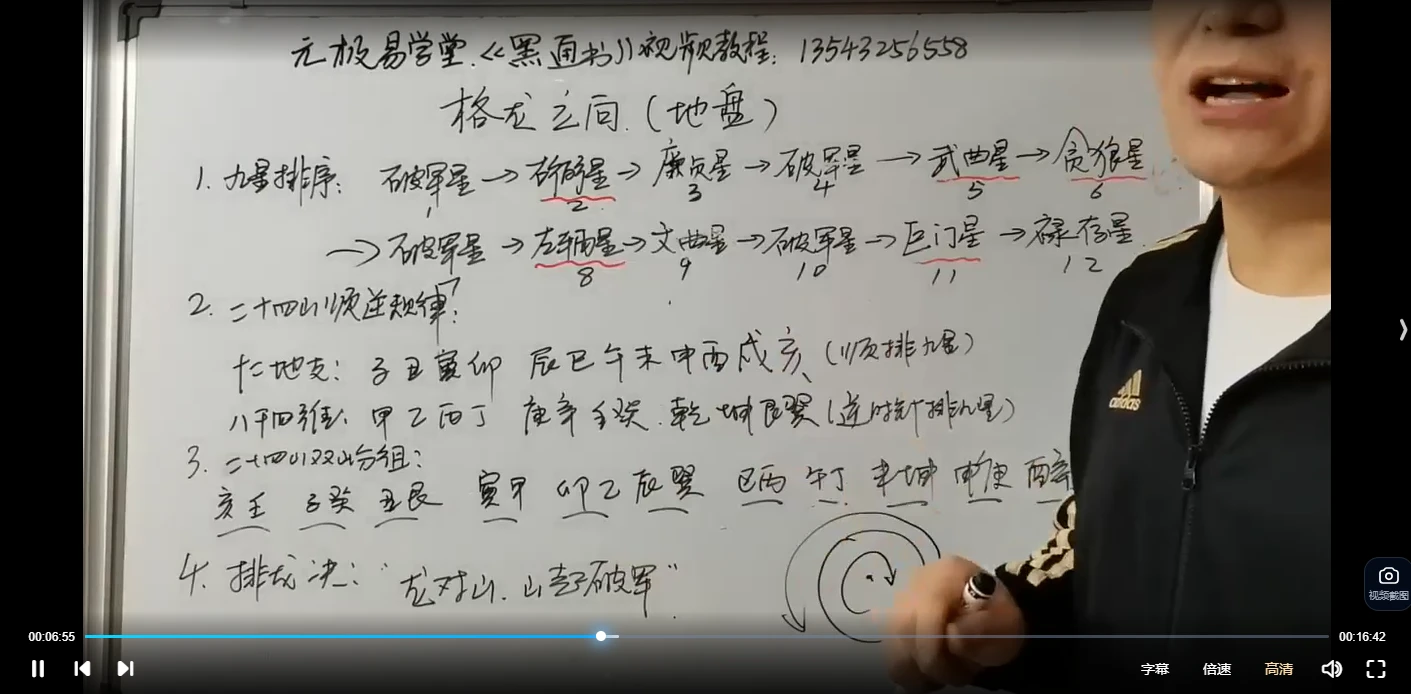 元极易学堂.《黑通书》视频教程：13543256558
格龙之向.（地盘）
1. 九星排序： 破军星→右弼星→廉贞星→破军星→武曲星→贪狼星
1 2 3 4 5 6
→破军星→左辅星→文曲星→破军星→巨门星→禄存星
8 9 10 11 12
2. 二十四山顺逆规律：
十二地支：子丑寅卯 辰巳午未申酉戌亥（顺排九星）
八干四维：甲乙丙丁 庚辛壬癸.乾坤艮巽（逆时针排九星）
3. 二十四山双山分组：
亥壬 子癸 丑艮 寅甲 卯乙 辰巽 巳丙 午丁 未坤 申庚 酉辛
4. 排龙决：“龙对山.山起破军”
adidas
视频截图
00:06:55 00:16:42
字幕 倍速 高清